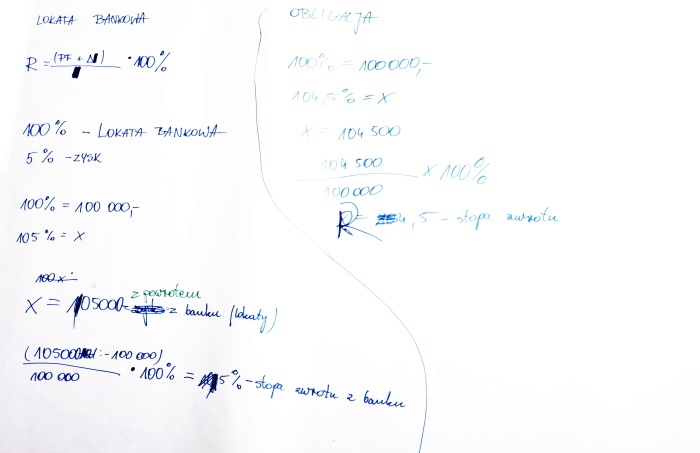 LOKATA BANKOWA
R = (PF + N) · 100%
100% - LOKATA BANKOWA
5% - ZYSK
100% = 100 000,-
105% = X
100x
z powrotem
X = 105000 - z banku (lokaty)
(105000 : - 100 000)
100 000
· 100% = 5% - stopa zwrotu z banku
OBLIGACJA
100% = 100000,-
104,5% = X
X = 104 500
104 500
100 000
x 100%
R = 4,5 - stopa zwrotu